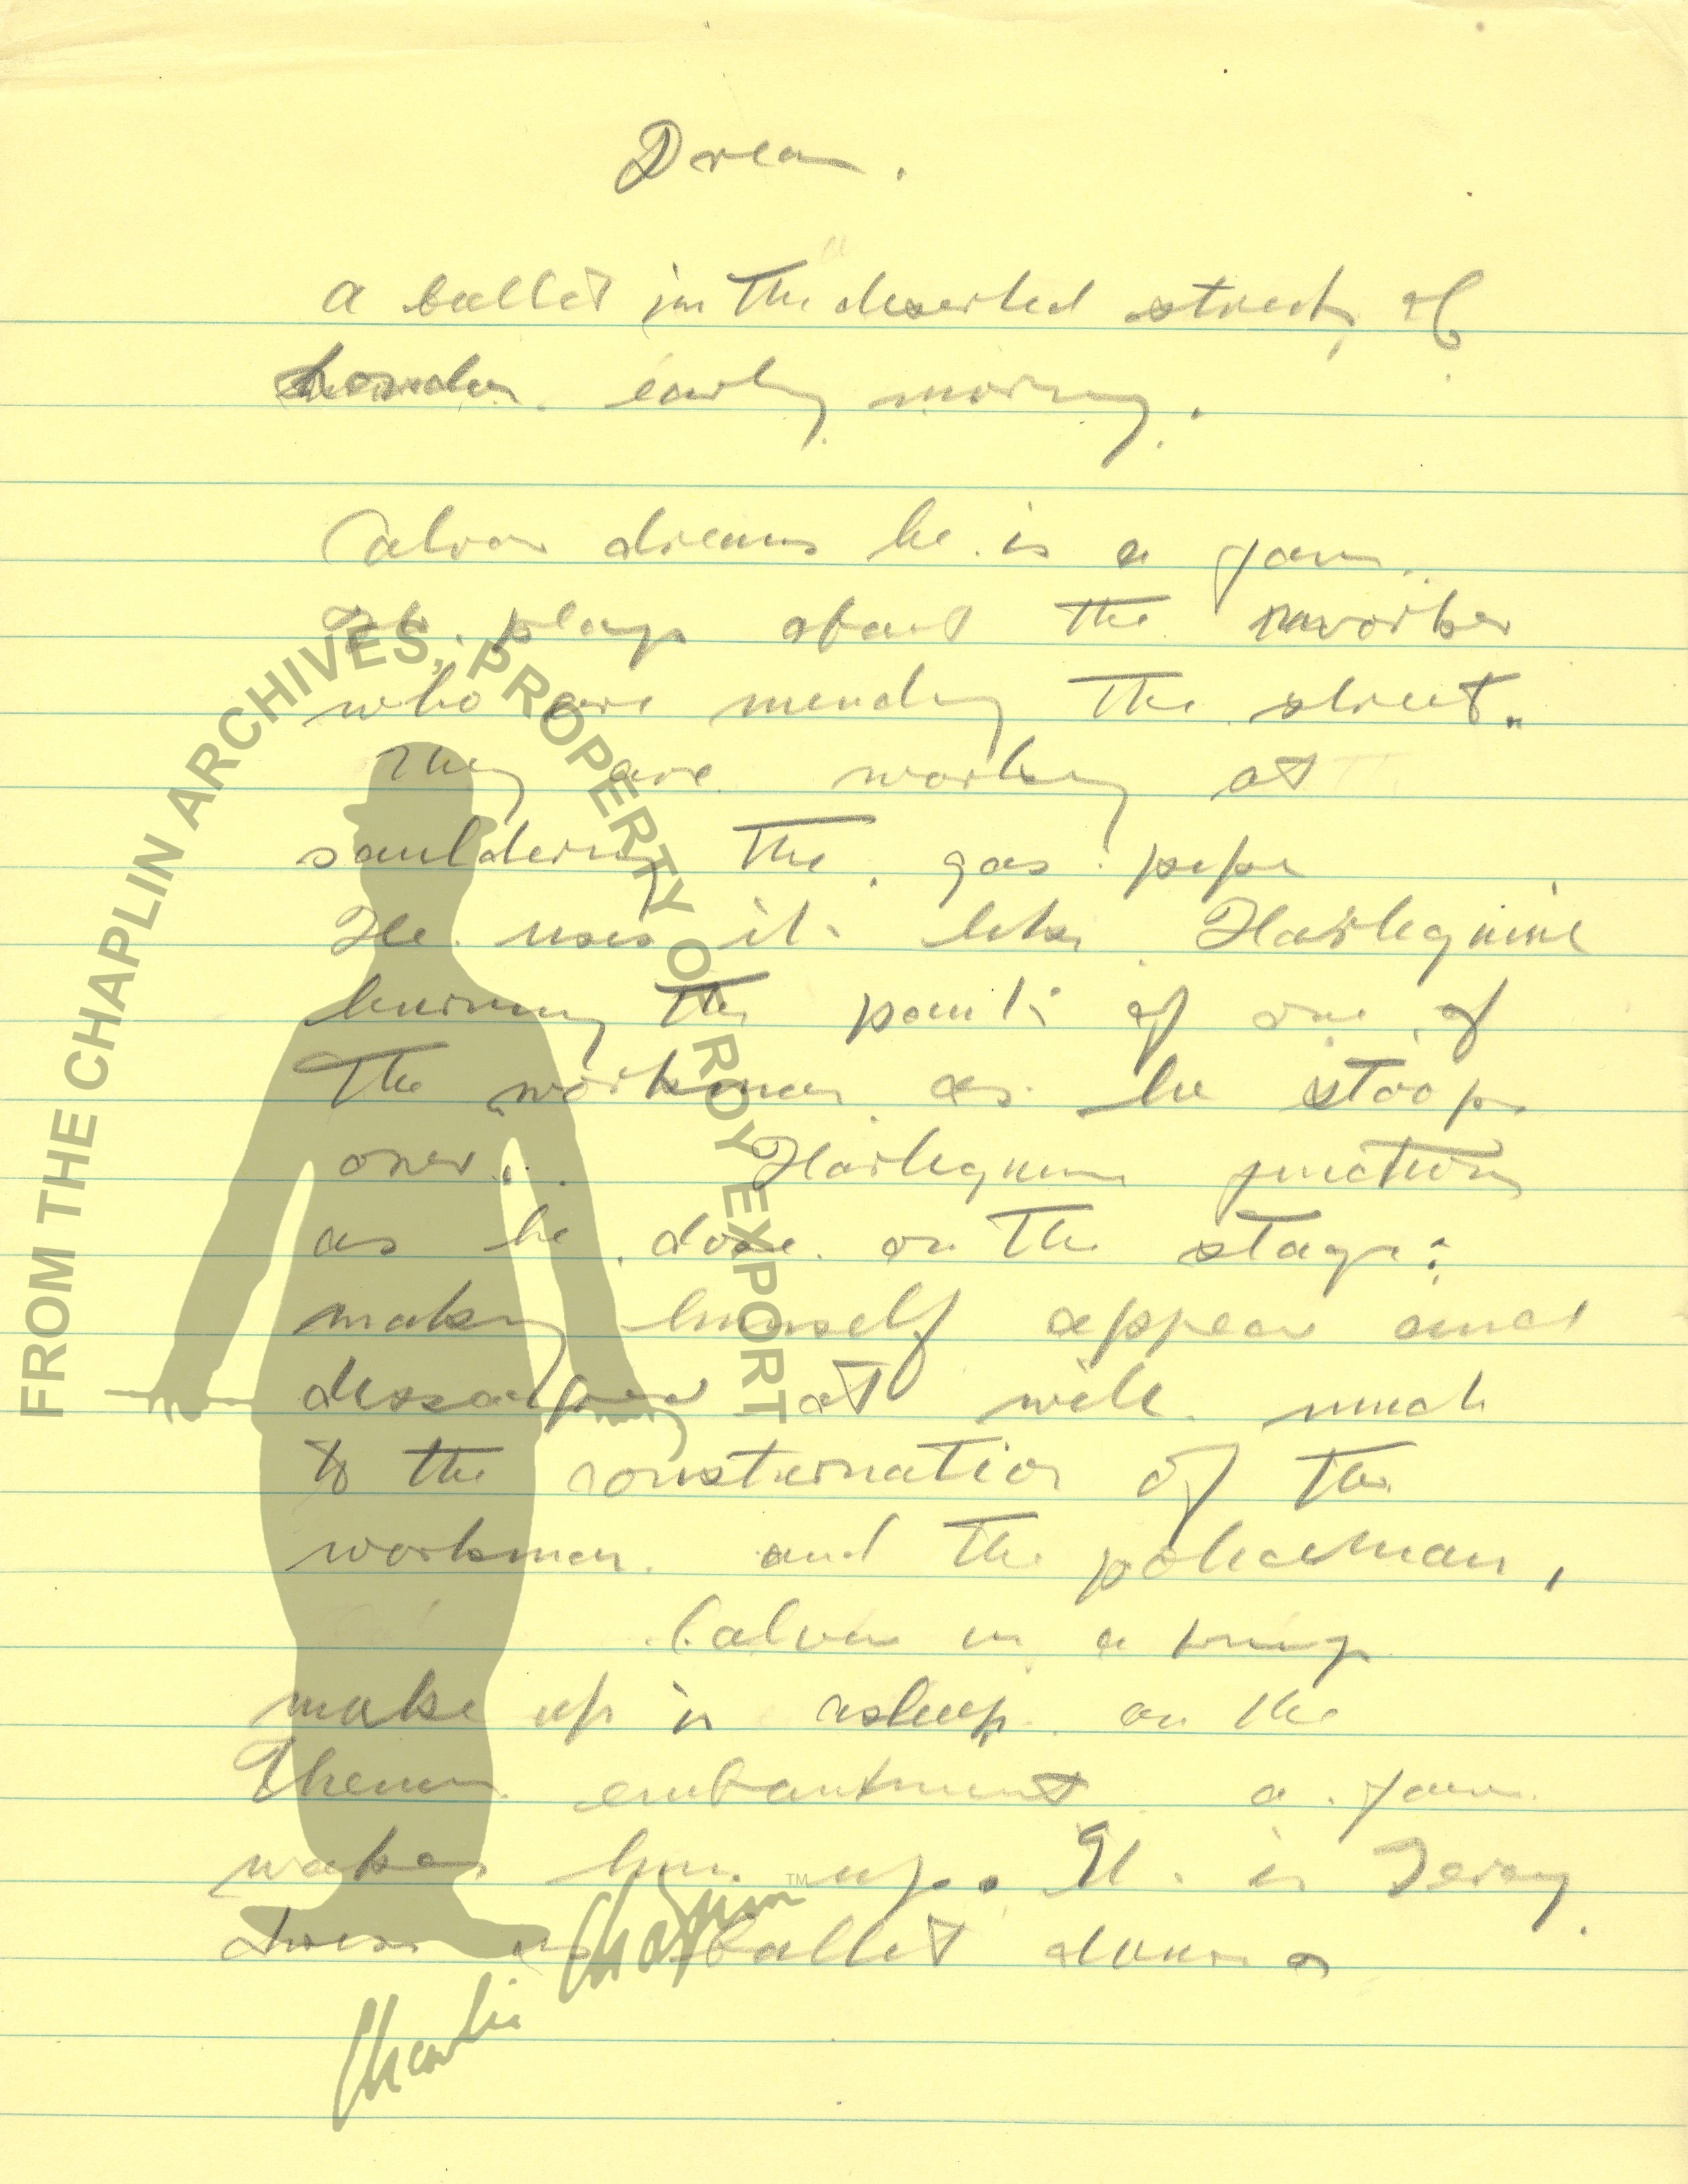 Dream.
a ballet in the deserted streets of
London early morning.
Calvero dreams he is a faun.
He plays about the worker
who are mending the street.
They are working at
sauldering the gas pipe
He uses it like Harlequine
burning the pants of one of
the workmen as he stoops
over. Harlequin function
as he dose on the stage:
making himself appear and
dessapear at will much
to the consternation of the
workmen and the policeman,
Calvero in a tramp
make up is asleep on the
Themes embankment a faun
wakes him up. It is Terry
dress as ballet dancer
FROM THE CHAPLIN ARCHIVES, PROPERTY OF ROY EXPORT
Charlie Chaplin ™